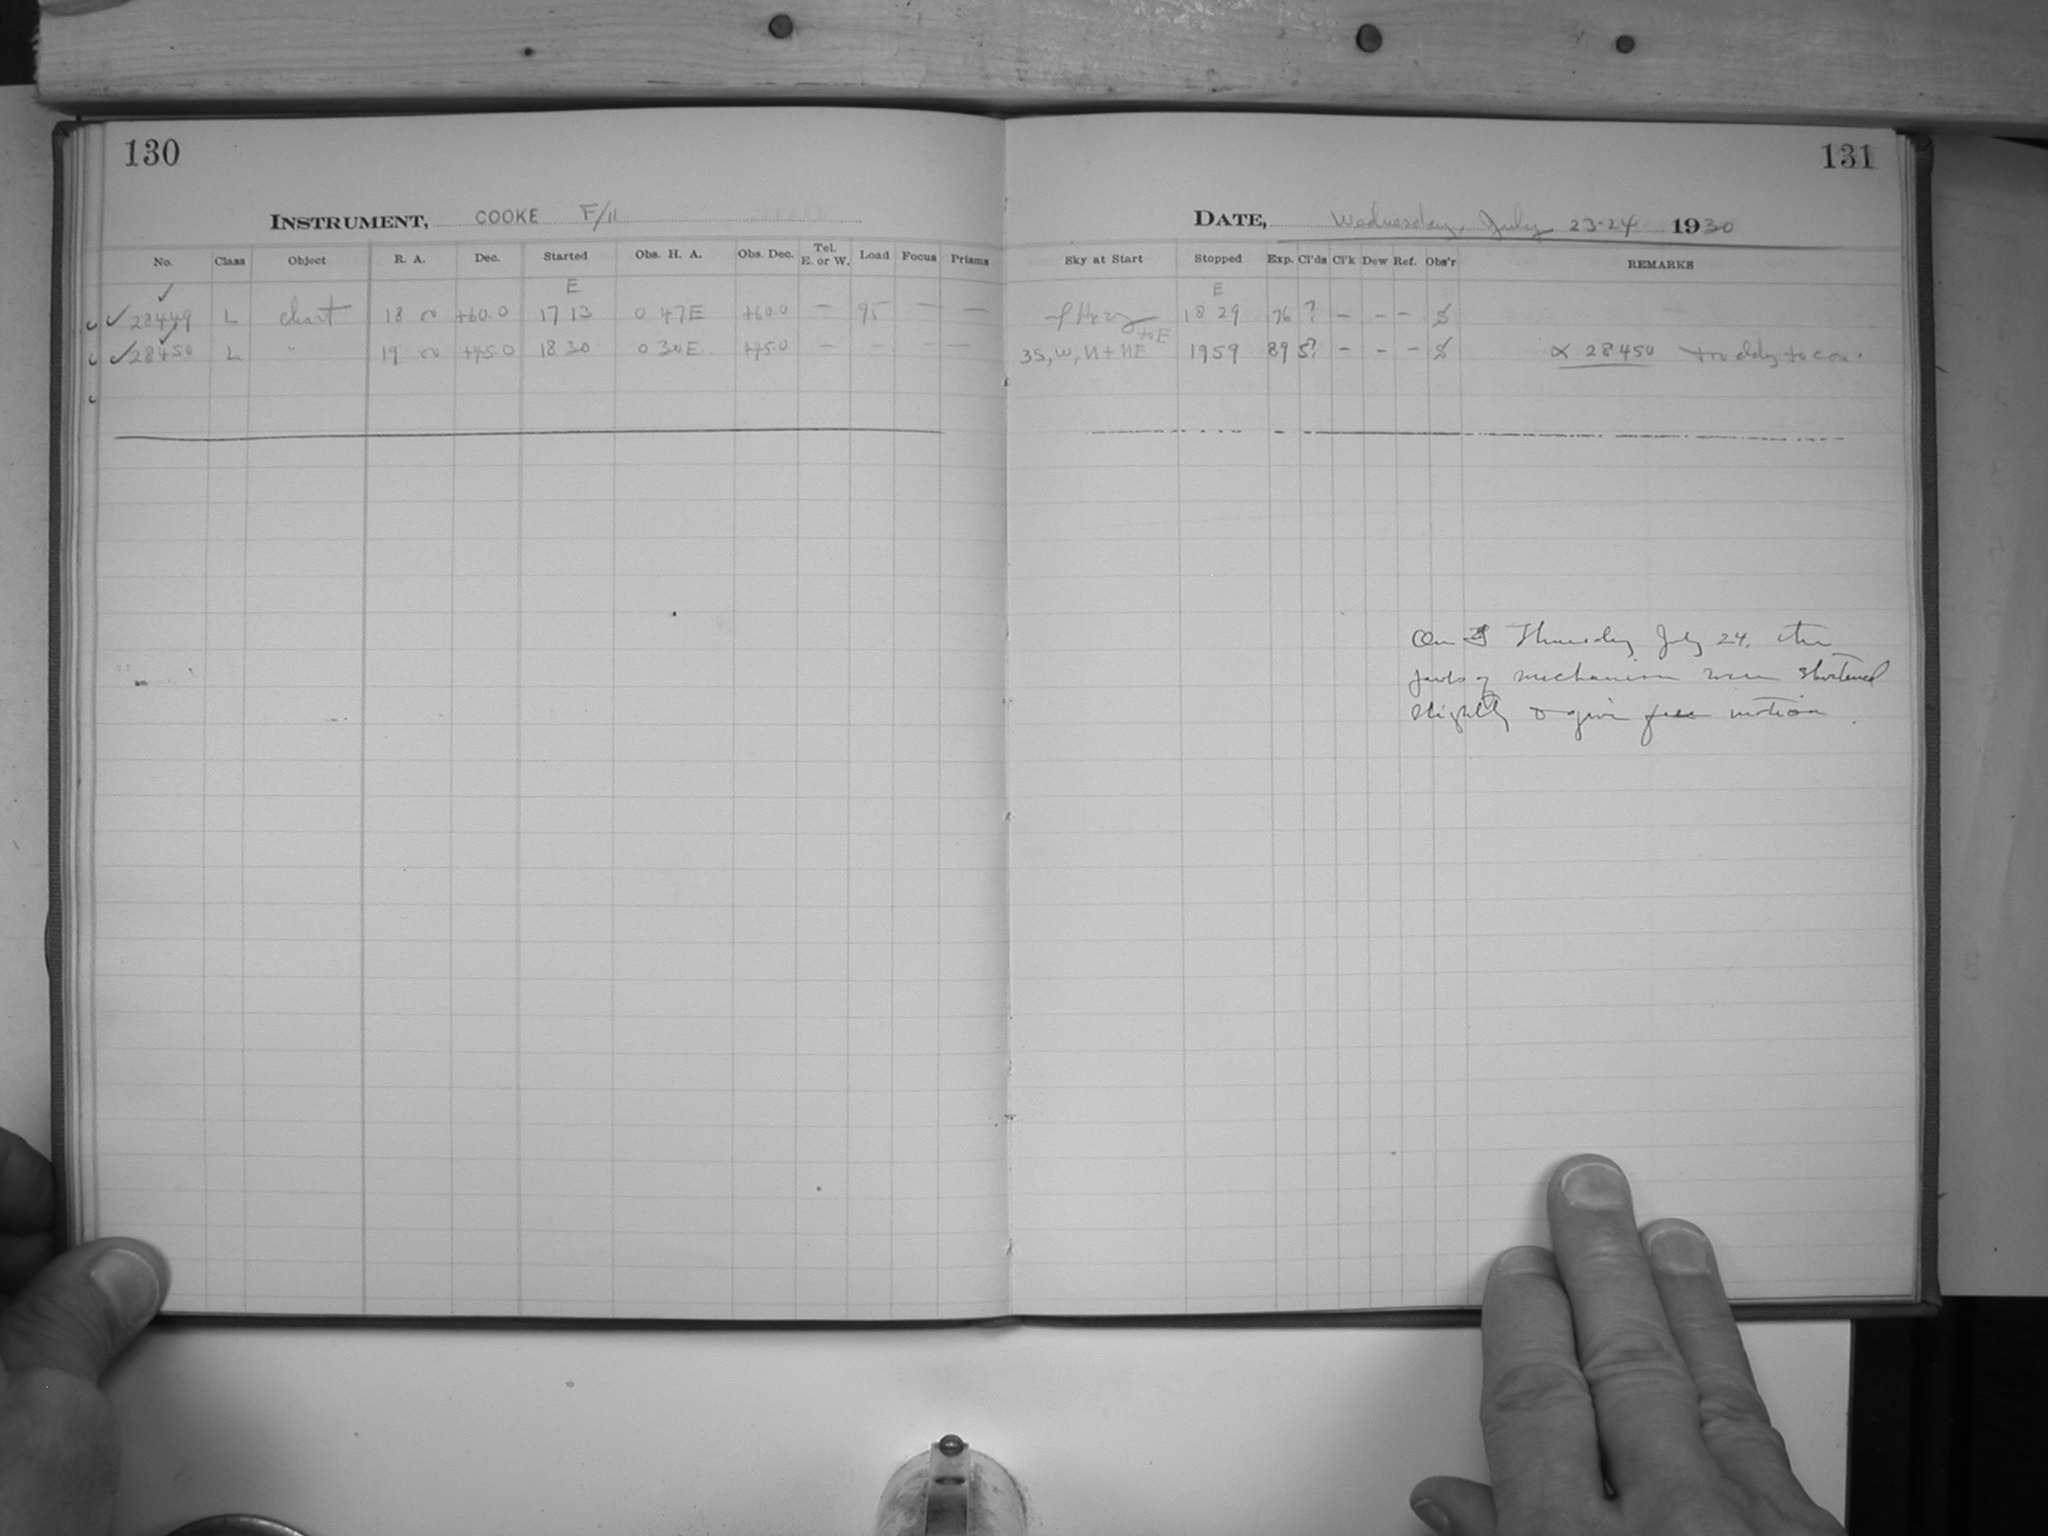 130
INSTRUMENT, COOKE F/11
No. Class Object R. A. Dec. Started Obs. H. A. Obs. Dec. Tel. E. or W. Load Focus Prisms
E
✓ 28449 L chart 18 00 +60.0 17 13 0 47E +60.0 — 95 — —
✓ 28450 L " 19 00 +45.0 18 30 0 30E +45.0 - - - —
131
DATE, Wednesday, July 23-24 1930
Sky at Start Stopped Exp. Cl'ds Cl'k Dew Ref. Obs'r REMARKS
E
18 29 76 ? - - -
to E
3S, W, N + NE 1959 89 5? - - - 28450
On Thursday July 24, the
of mechanism were shortened
slightly to give free motion.